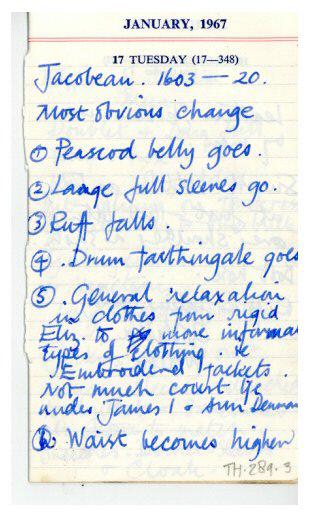 JANUARY, 1967
17 TUESDAY (17—348)
Jacobean. 1603 — 20.
Most obvious change
① Peascod belly goes.
② Large full sleeves go.
③ Ruff falls.
④. Drum farthingale goes
⑤. General relaxation
in clothes from rigid
Eliz. to more informal
types of clothing. ie
Embroidered jackets.
Not much court life
under James I + Ann Denmar
⑥ Waist becomes higher
TH.289.3